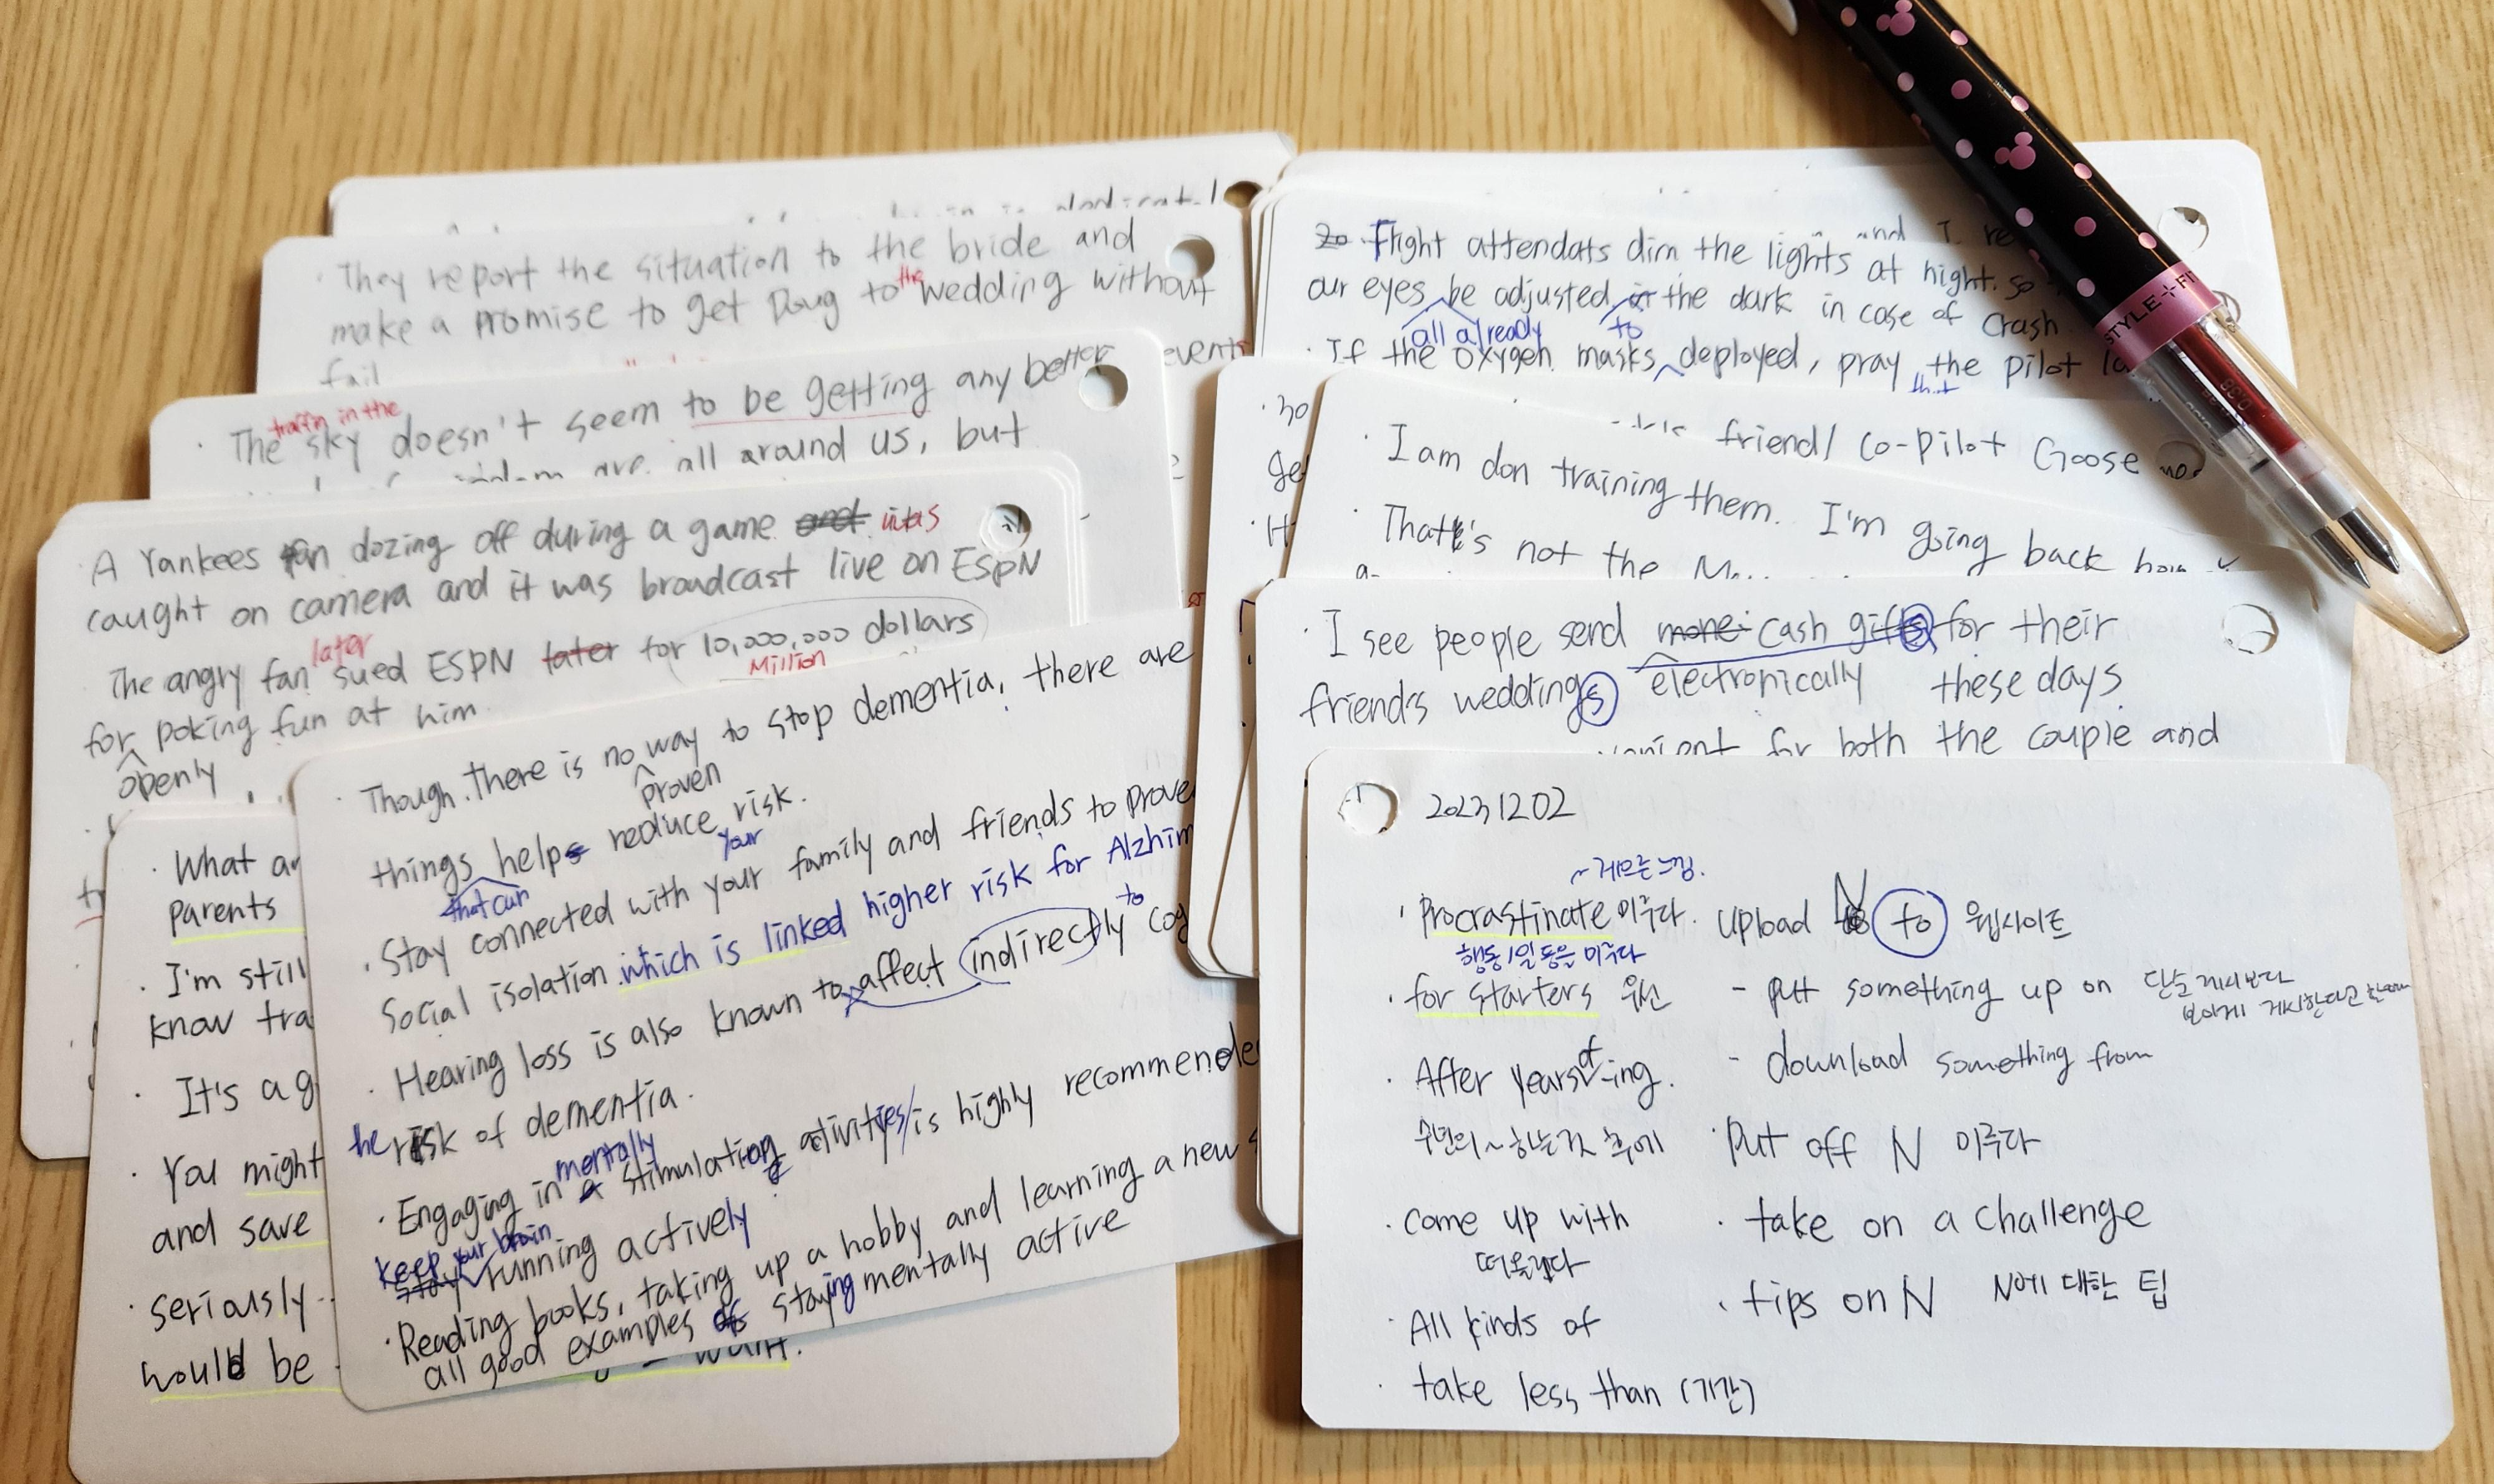 They report the situation to the bride and
make a promise to get Doug to the wedding without
fail
events
traffic in the
The sky doesn't seem to be getting any better
are all around us, but
A Yankees fan dozing off during a game and was
caught on camera and it was broadcast live on ESPN
later
The angry fan sued ESPN later for 10,000,000 dollars
Million
for poking fun at him
openly
What
Parents
I'm still
know
It's a
You might
and save
seriously
would be
Though there is no way to stop dementia, there are
proven
things helps reduce risk.
that can
your
Stay connected with your family and friends to
Social isolation which is linked higher risk for
to
Hearing loss is also known to affect indirectly
risk of dementia.
mentally
Engaging in a stimulating activities is highly
keep your brain
stay running actively
Reading books, taking up a hobby and learning a new
all good examples of staying mentally active
Flight attendats dim the lights at night. so
our eyes be adjusted in the dark in case of crash
all already
to
If the oxygen masks deployed, pray the pilot
that
friend/ co-pilot Goose
I am don training them. I'm going back
That's not the
I see people send cash gifts for their
electronically
friend's weddings these days
for both the couple and
20231202
~게으른 느낌.
procrastinate 미루다.
행동/일 등을 미루다
for starters 우선
After years of -ing.
수년의 ~하는 것 후에
Come up with
떠올리다
All kinds of
take less than (기간)
upload N to 웹사이트
- put something up on 단순 게시보다
- download something from
put off N 미루다
take on a challenge
tips on N N에 대한 팁
STYLE+FIT